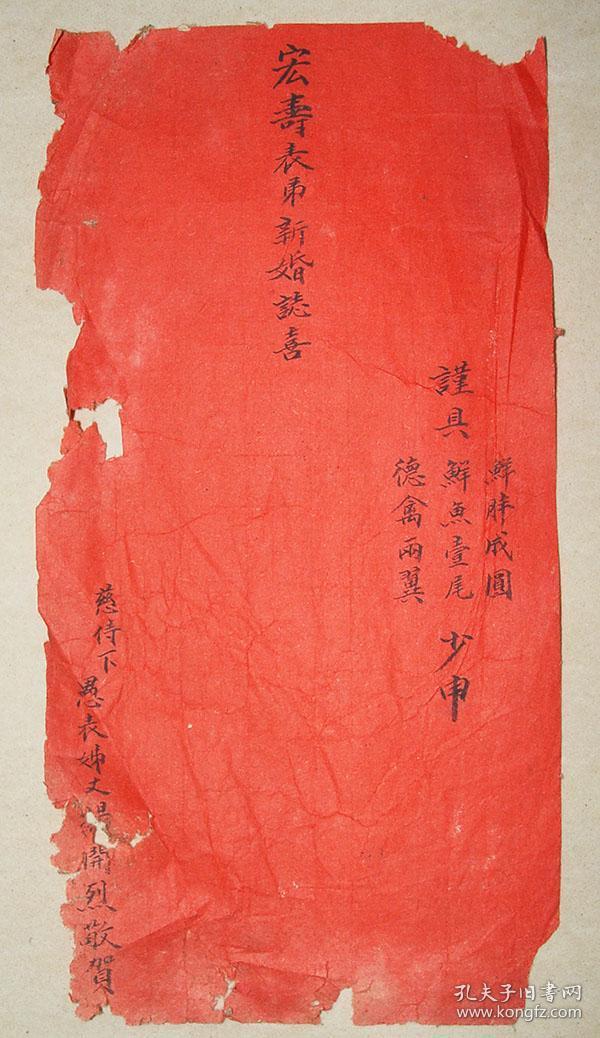 鮮胖成圓
謹具 鮮魚壹尾 少申
德禽兩翼
宏壽表弟新婚誌喜
慈侍下 愚表姊丈開烈敬賀
孔夫子旧书网
www.kongfz.com